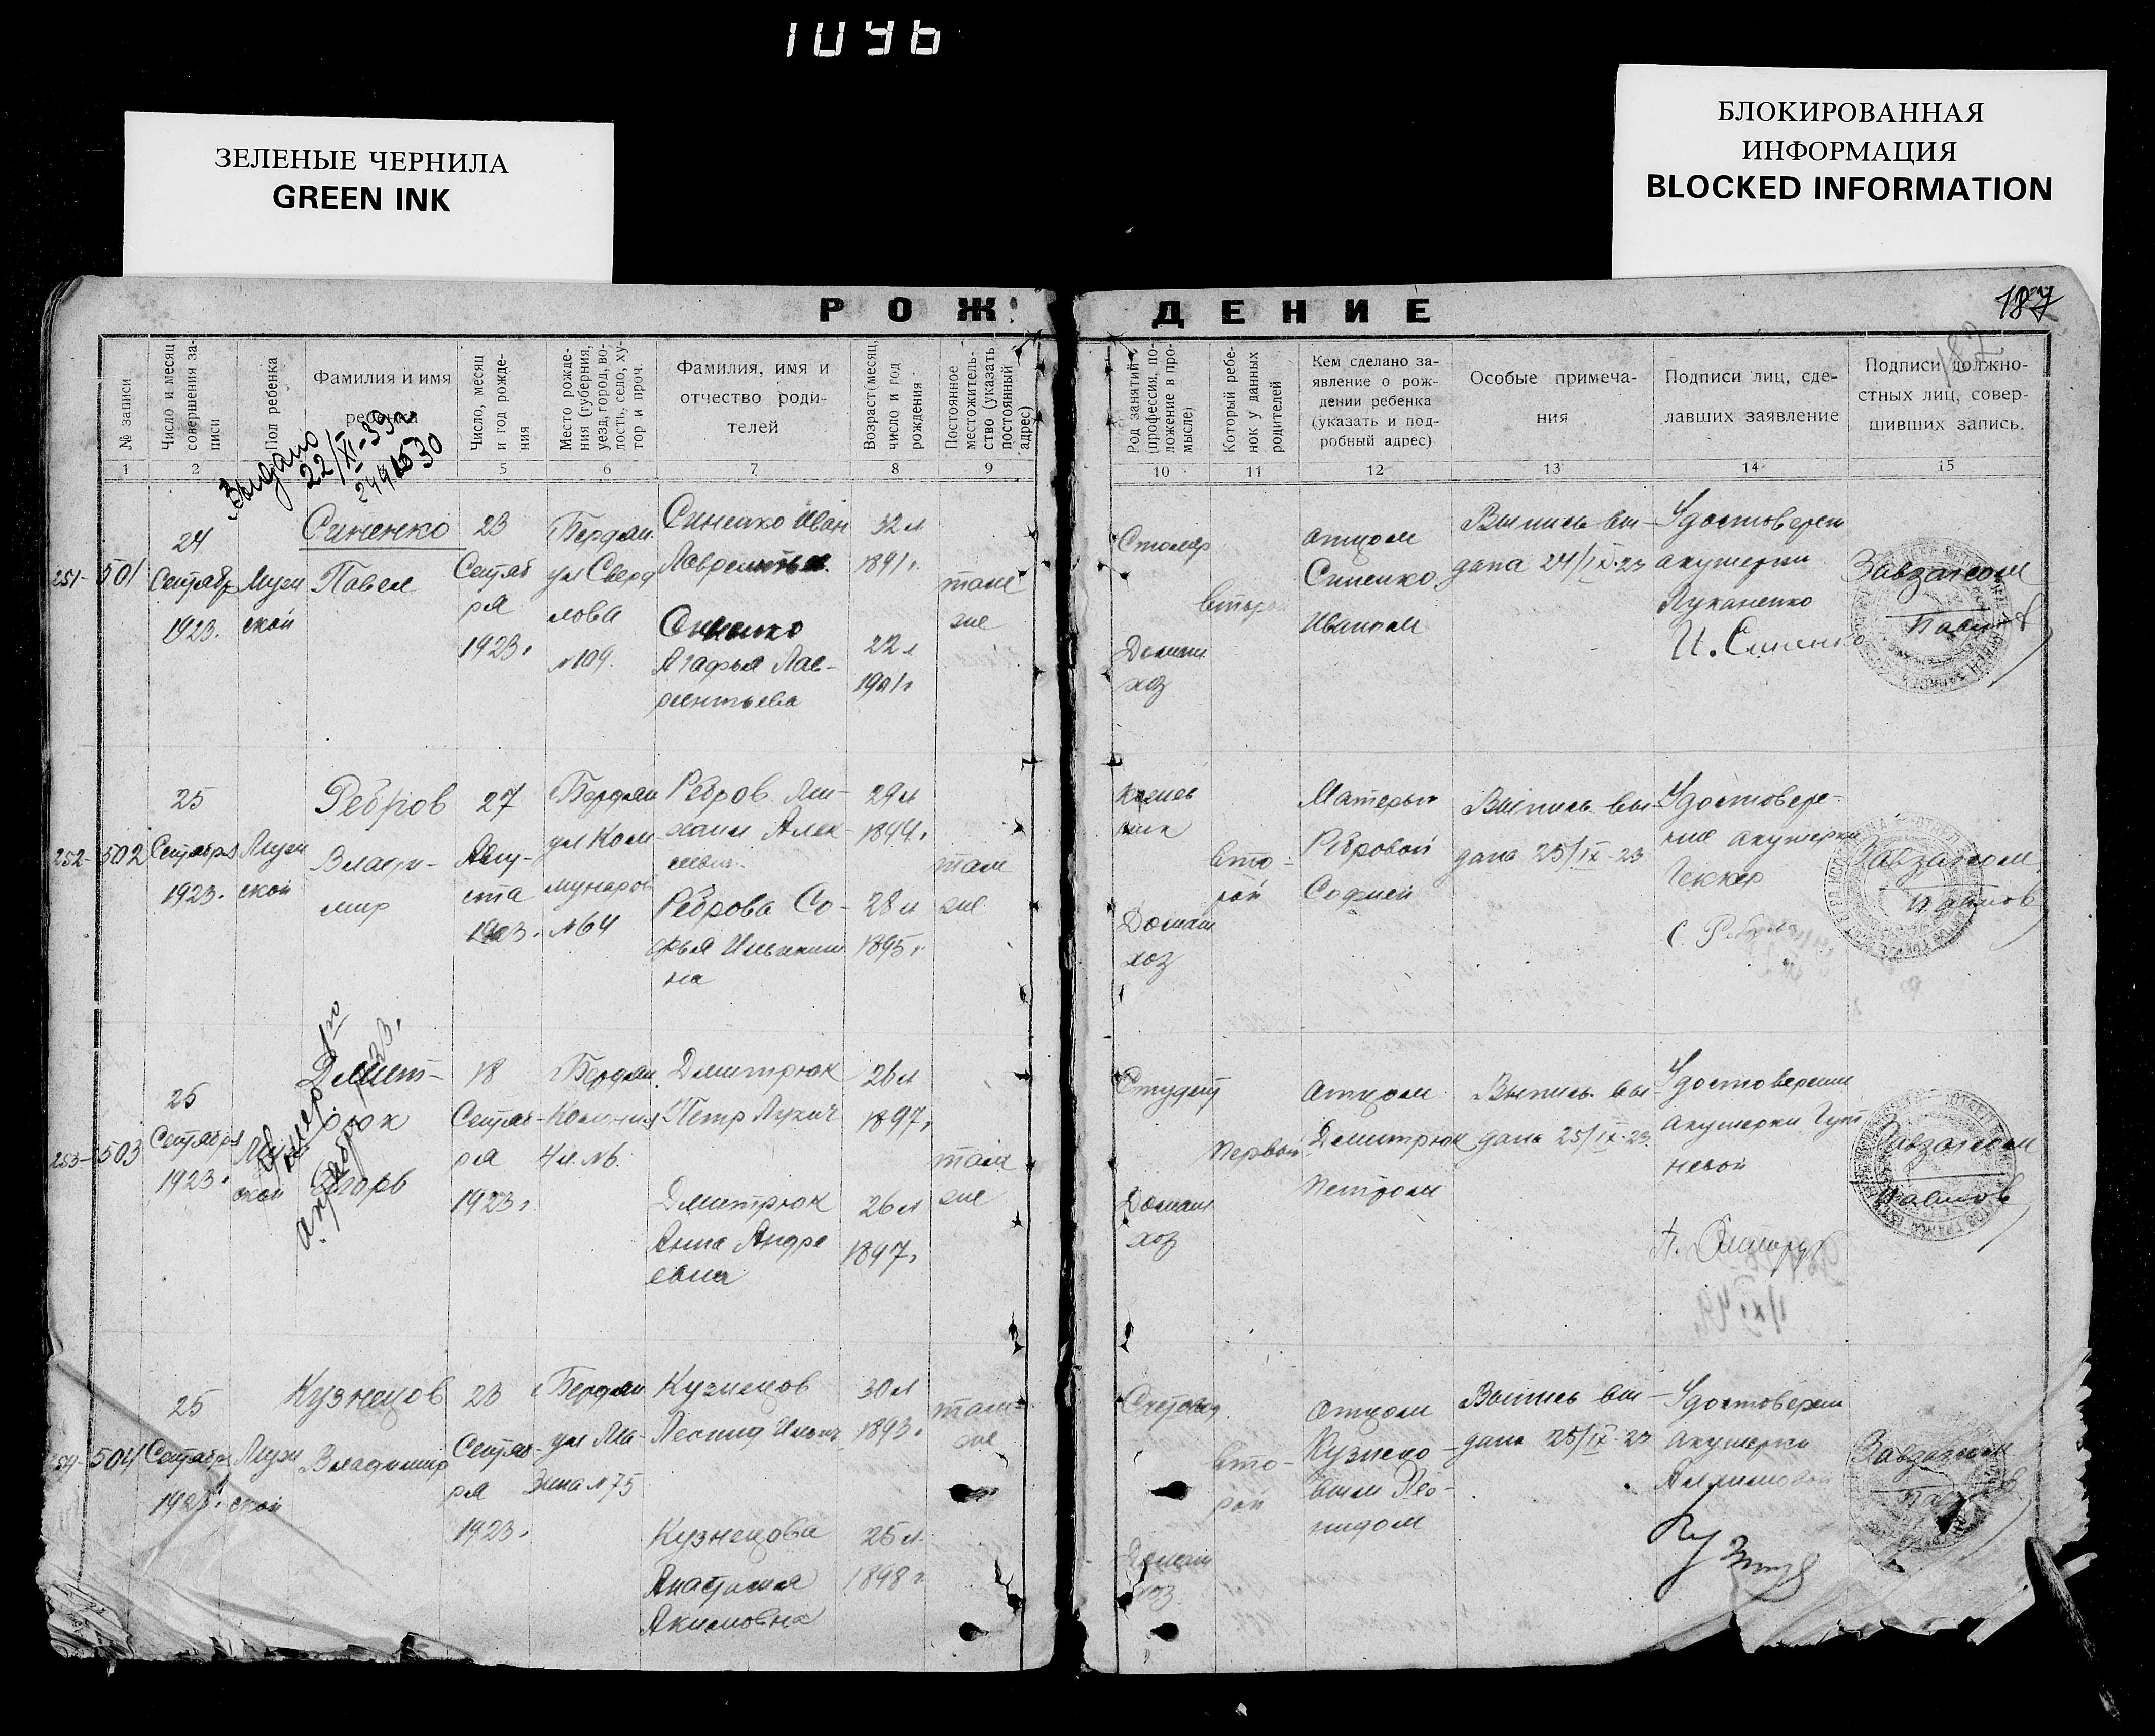 1046
ЗЕЛЕНЫЕ ЧЕРНИЛА
GREEN INK
БЛОКИРОВАННАЯ
ИНФОРМАЦИЯ
BLOCKED INFORMATION
РОЖДЕНИЕ
187
182
№ записи
Число и месяц совершения записи
Пол ребенка
Фамилия и имя
ребенка
Число, месяц
и год рожде-
ния
Место рожде-
ния (губерния,
уезд, город, во-
лость, село, ху-
тор и проч.
Фамилия, имя и
отчество роди-
телей
Возраст (месяц,
число и год
рождения
Постоянное
местожитель-
ство (указать
постоянный
адрес)
Род занятий
(профессия, по-
ложение в про-
мысле)
Который ребе-
нок у данных
родителей
Кем сделано за-
явление о рож-
дении ребенка
(указать и под-
робный адрес)
Особые примеча-
ния
Подписи лиц, сде-
лавших заявление
Подписи должно-
стных лиц, совер-
шивших запись.
1 2 5 6 7 8 9 10 11 12 13 14 15
Выдано
22/XI-39г
251-
501
24
Сентября
1923.
Мужской
Синенко
Павел
23
Сентяб
ря
1923.
Бердян.
ул Сверд
лова
№109.
Синенко Иван
Лаврентьев.
Синенко
Агафья Лав-
рентьева
32 л
1891 г.
22 л
1901 г
там
же
Столяр
Домаш
хоз
второй
отцом
Синенко
Иваном
Выпись вы-
дана 24/IX-23
Удостоверен
акушерки
Луканенко
И. Синенко
Завзагсом
Павлов
252-
502
25
Сентября
1923.
Мужской
Ребров
Влади-
мир
27
Авгу-
ста
1923.
Бердян
ул Ком
мунаров
№64
Ребров Ми-
хаил Алек-
Реброва Со-
фья
на
29 л
1894 г.
28 л
1895 г.
там
же
Домаш
хоз
вто-
рой
Матерью
Ребровой
Софией
Выпись вы-
дана 25/IX-23
Удостовере-
ние акушерки
Геккер
С. Реброва
Завзагсом
Павлов
253-
503
25
Сентября
1923.
Мужской
Дмит-
рюк
Игорь
умер
18
Сентяб-
ря
1923 г.
Бердян.
Колония
4 л. №6.
Дмитрюк
Петр Лукич
Дмитрюк
Анна Андре
евна
26 л
1897 г.
26 л
1897 г.
там
же
Студент
Домаш
хоз
первый
отцом
Дмитрюк
Петром
Выпись вы-
дана 25/IX-23.
Удостоверении
акушерки Гут
невой
П. Дмитрук
Завзагсом
Павлов
254-
504
25
Сентября
1923.
Мужской
Кузнецов
Владимир
23
Сентяб-
ря
1923.
Бердян
ул Ма-
зина №75
Кузнецов
Леонид Ильич
Кузнецова
Анастасия
Акимовна
30 л
1893 г.
25 л.
1898 г.
там
же
Счетовод
Домаш
хоз.
вто-
рой
отцом
Кузнецо-
вым Лео-
нидом
Выпись вы-
дана 25/IX-23
Удостоверен
акушерки
Завзагсом
Павлов